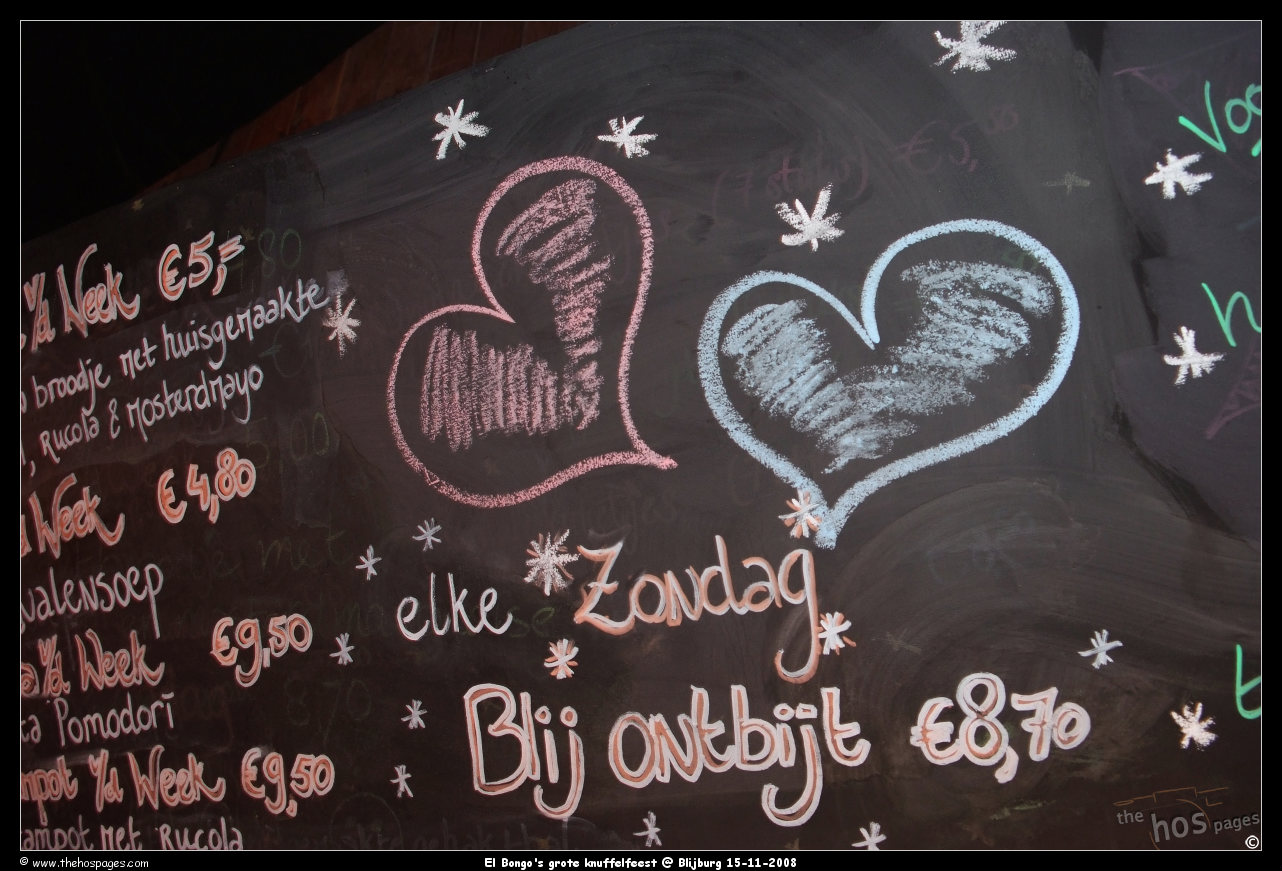 v/d Week €5,=
broodje met huisgemaakte
, Rucola & mosterdmayo
Week €4,80
valensoep
v/d Week €9,50
Pomodori
v/d Week €9,50
met Rucola
elke Zondag
Blij ontbijt €8,70
the hos pages
©
© www.thehospages.com
El Bongo's grote knuffelfeest @ Blijburg 15-11-2008